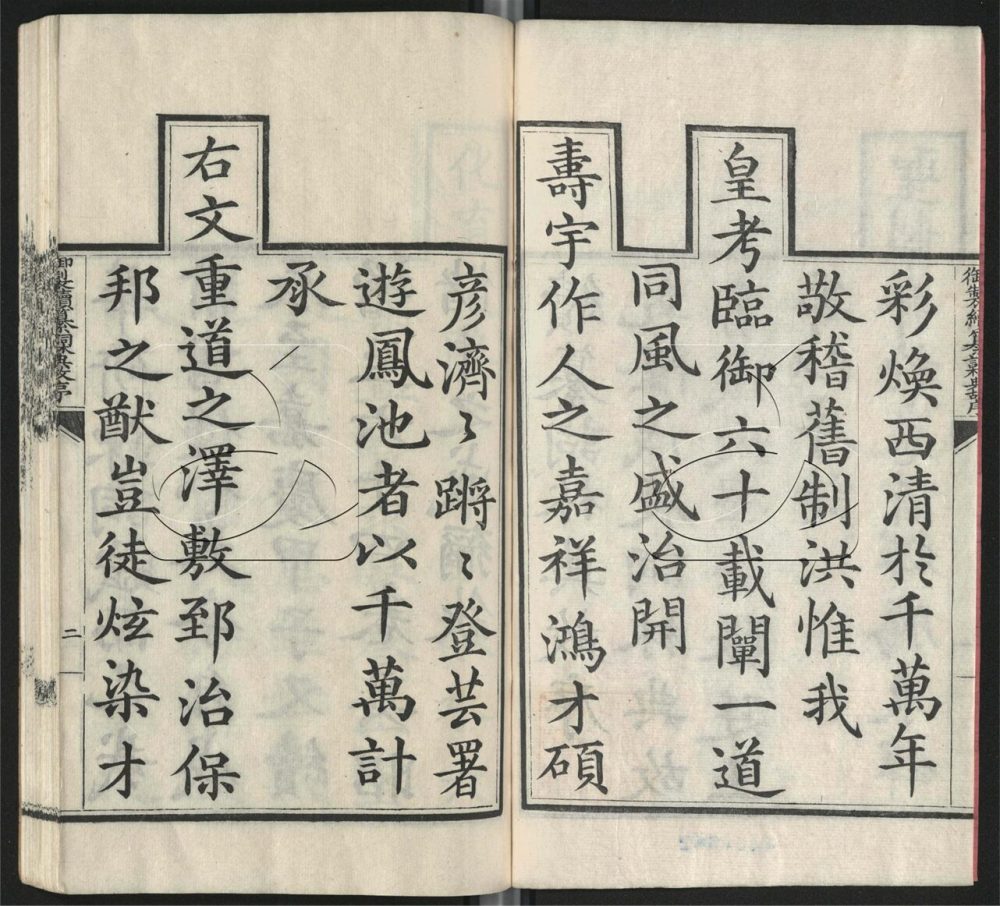 彩煥西清於千萬年
敬稽舊制洪惟我
皇考臨御六十載闡一道
同風之盛治開
壽宇作人之嘉祥鴻才碩
彥濟〻蹡〻登芸署
遊鳳池者以千萬計
承
右文重道之澤敷郅治保
邦之猷豈徒炫染才
二